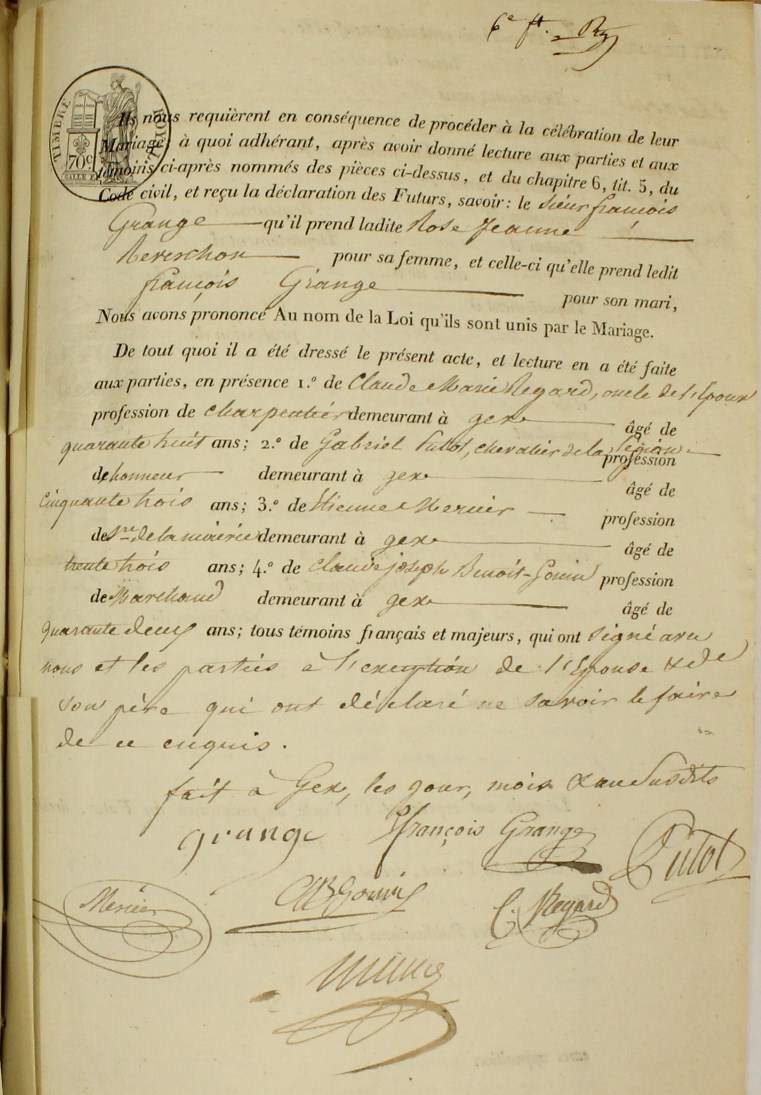 6e ft.
TIMBRE ROYAL
70c
Ils nous requièrent en conséquence de procéder à la célébration de leur
Mariage, à quoi adhérant, après avoir donné lecture aux parties et aux
témoins ci-après nommés des pièces ci-dessus, et du chapitre 6, tit. 5, du
Code civil, et reçu la déclaration des Futurs, savoir: le sieur françois
Grange qu'il prend ladite Rose Jeanne
Reverchon pour sa femme, et celle-ci qu'elle prend ledit
françois Grange pour son mari,
Nous avons prononcé Au nom de la Loi qu'ils sont unis par le Mariage.
De tout quoi il a été dressé le présent acte, et lecture en a été faite
aux parties, en présence 1.º de Claude Marie Regard, oncle de l'Epoux
profession de charpentier demeurant à gex âgé de
quarante huit ans; 2.º de Gabriel Putot, chevalier de la Légion profession
de honneur demeurant à gex âgé de
Cinquante trois ans; 3.º de Etienne Mercier profession
de Sre. de la mairie demeurant à gex âgé de
trente trois ans; 4.º de Claude joseph Benoit-Gonin profession
de Marchand demeurant à gex âgé de
quarante deux ans; tous témoins français et majeurs, qui ont signé avec
nous et les parties à l'exception de l'Epouse & de
son père qui ont déclaré ne savoir le faire
de ce enquis.
fait à Gex, les jour, mois & an Susdits
grange françois Grange Putot
Mercier C. Regard